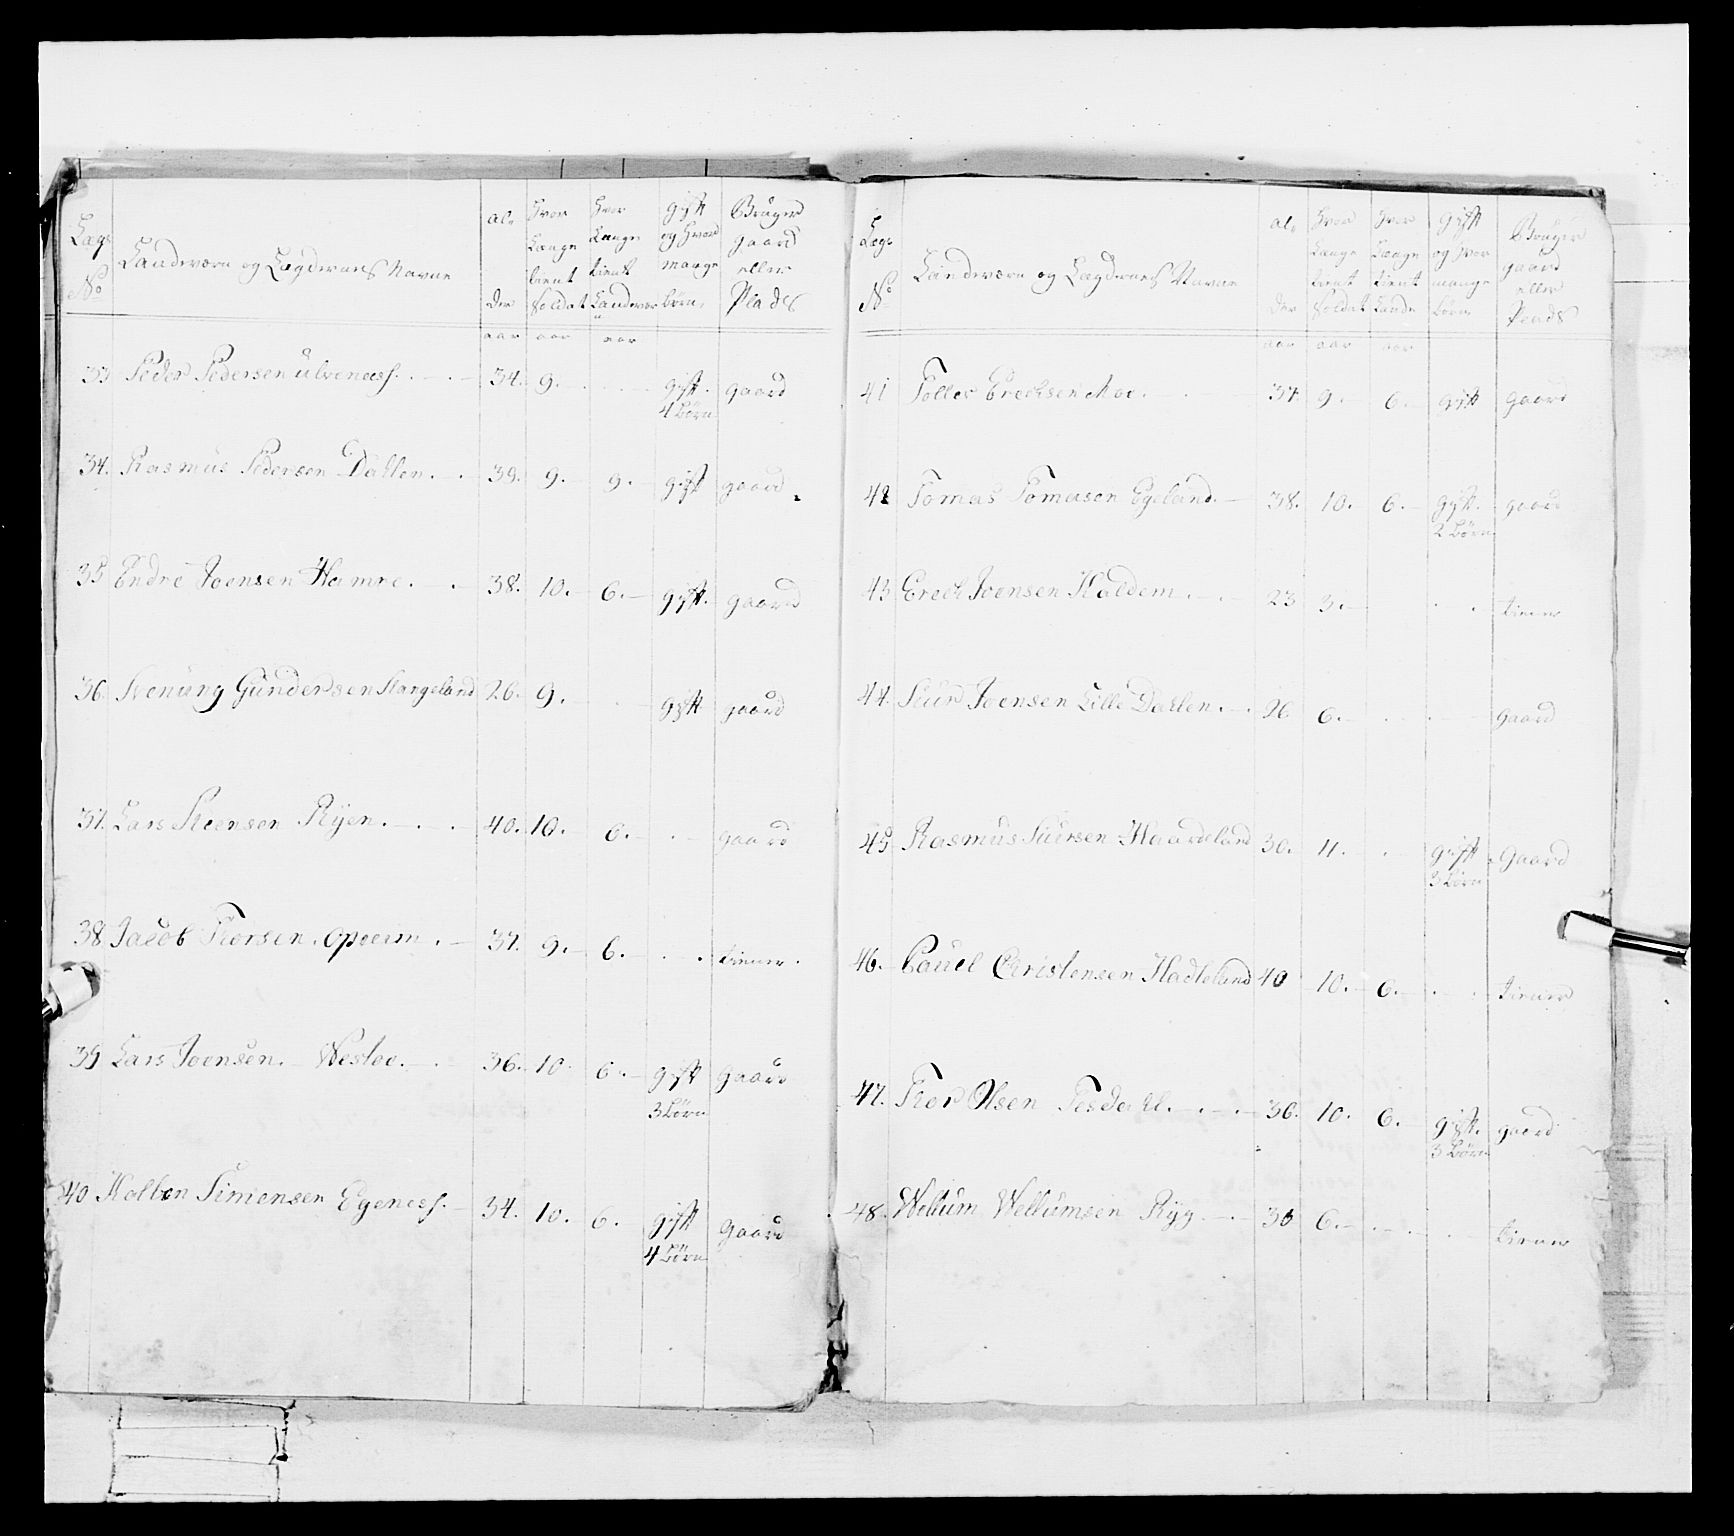 Læg No | Landværn og Lægdvans Navne | alder | Hvor Længe tient Soldat | Hvor Længe tient Landver | gift og Hvor mange børn | Bruger gaard eller Plads
aar aar aar
33 Peder Pedersen Ulvenæss 34. 9. gift. gaard
4 Børn
34. Rasmus Pedersen Dahlen 39. 9. 9. gift gaard
35 Endre Joensen Hamre 38. 10. 6. gift. gaard
36. Svenung Gundersen Stangeland 26. 9. gift gaard
37. Lars Steensen Ryen 40. 10. 6. gaard
38 Jacob Thorsen Opoeim 37. 9. 6. tiener
39 Lars Joensen Westoe 36. 10. 6. gift gaard
3 Børn
40 Holben Simensen Egenæss. 34. 10. 6. gift gaard
4 Børn
Læg No | Landværn og Lægdvans Navne | alder | Hvor Længe tient Soldat | Hvor Længe tient Lande | gift og Hvor mange børn | Bruger gaard eller Plads
aar aar aar
41 Tollev Erechsen Moe 37. 9. 6. gift gaard
42 Tomas Tomasen Egeland 38. 10. 6. gift. gaard
2 Børn
43 Erech Joensen Haldem 23 3. tiener
44. Siur Joensen Lille Dahlen 26 6. gaard
45 Rasmus Siursen Haardeland 30. 11. gift Gaard
3 Børn
46. Pauel Christensen Hadleland 40 10. 6. tiener
47. Thor Olsen Tesdahl 36. 10. 6. gift. gaard
3 Børn
48. Wellum Wellumsen Ryg 36 6. tiener